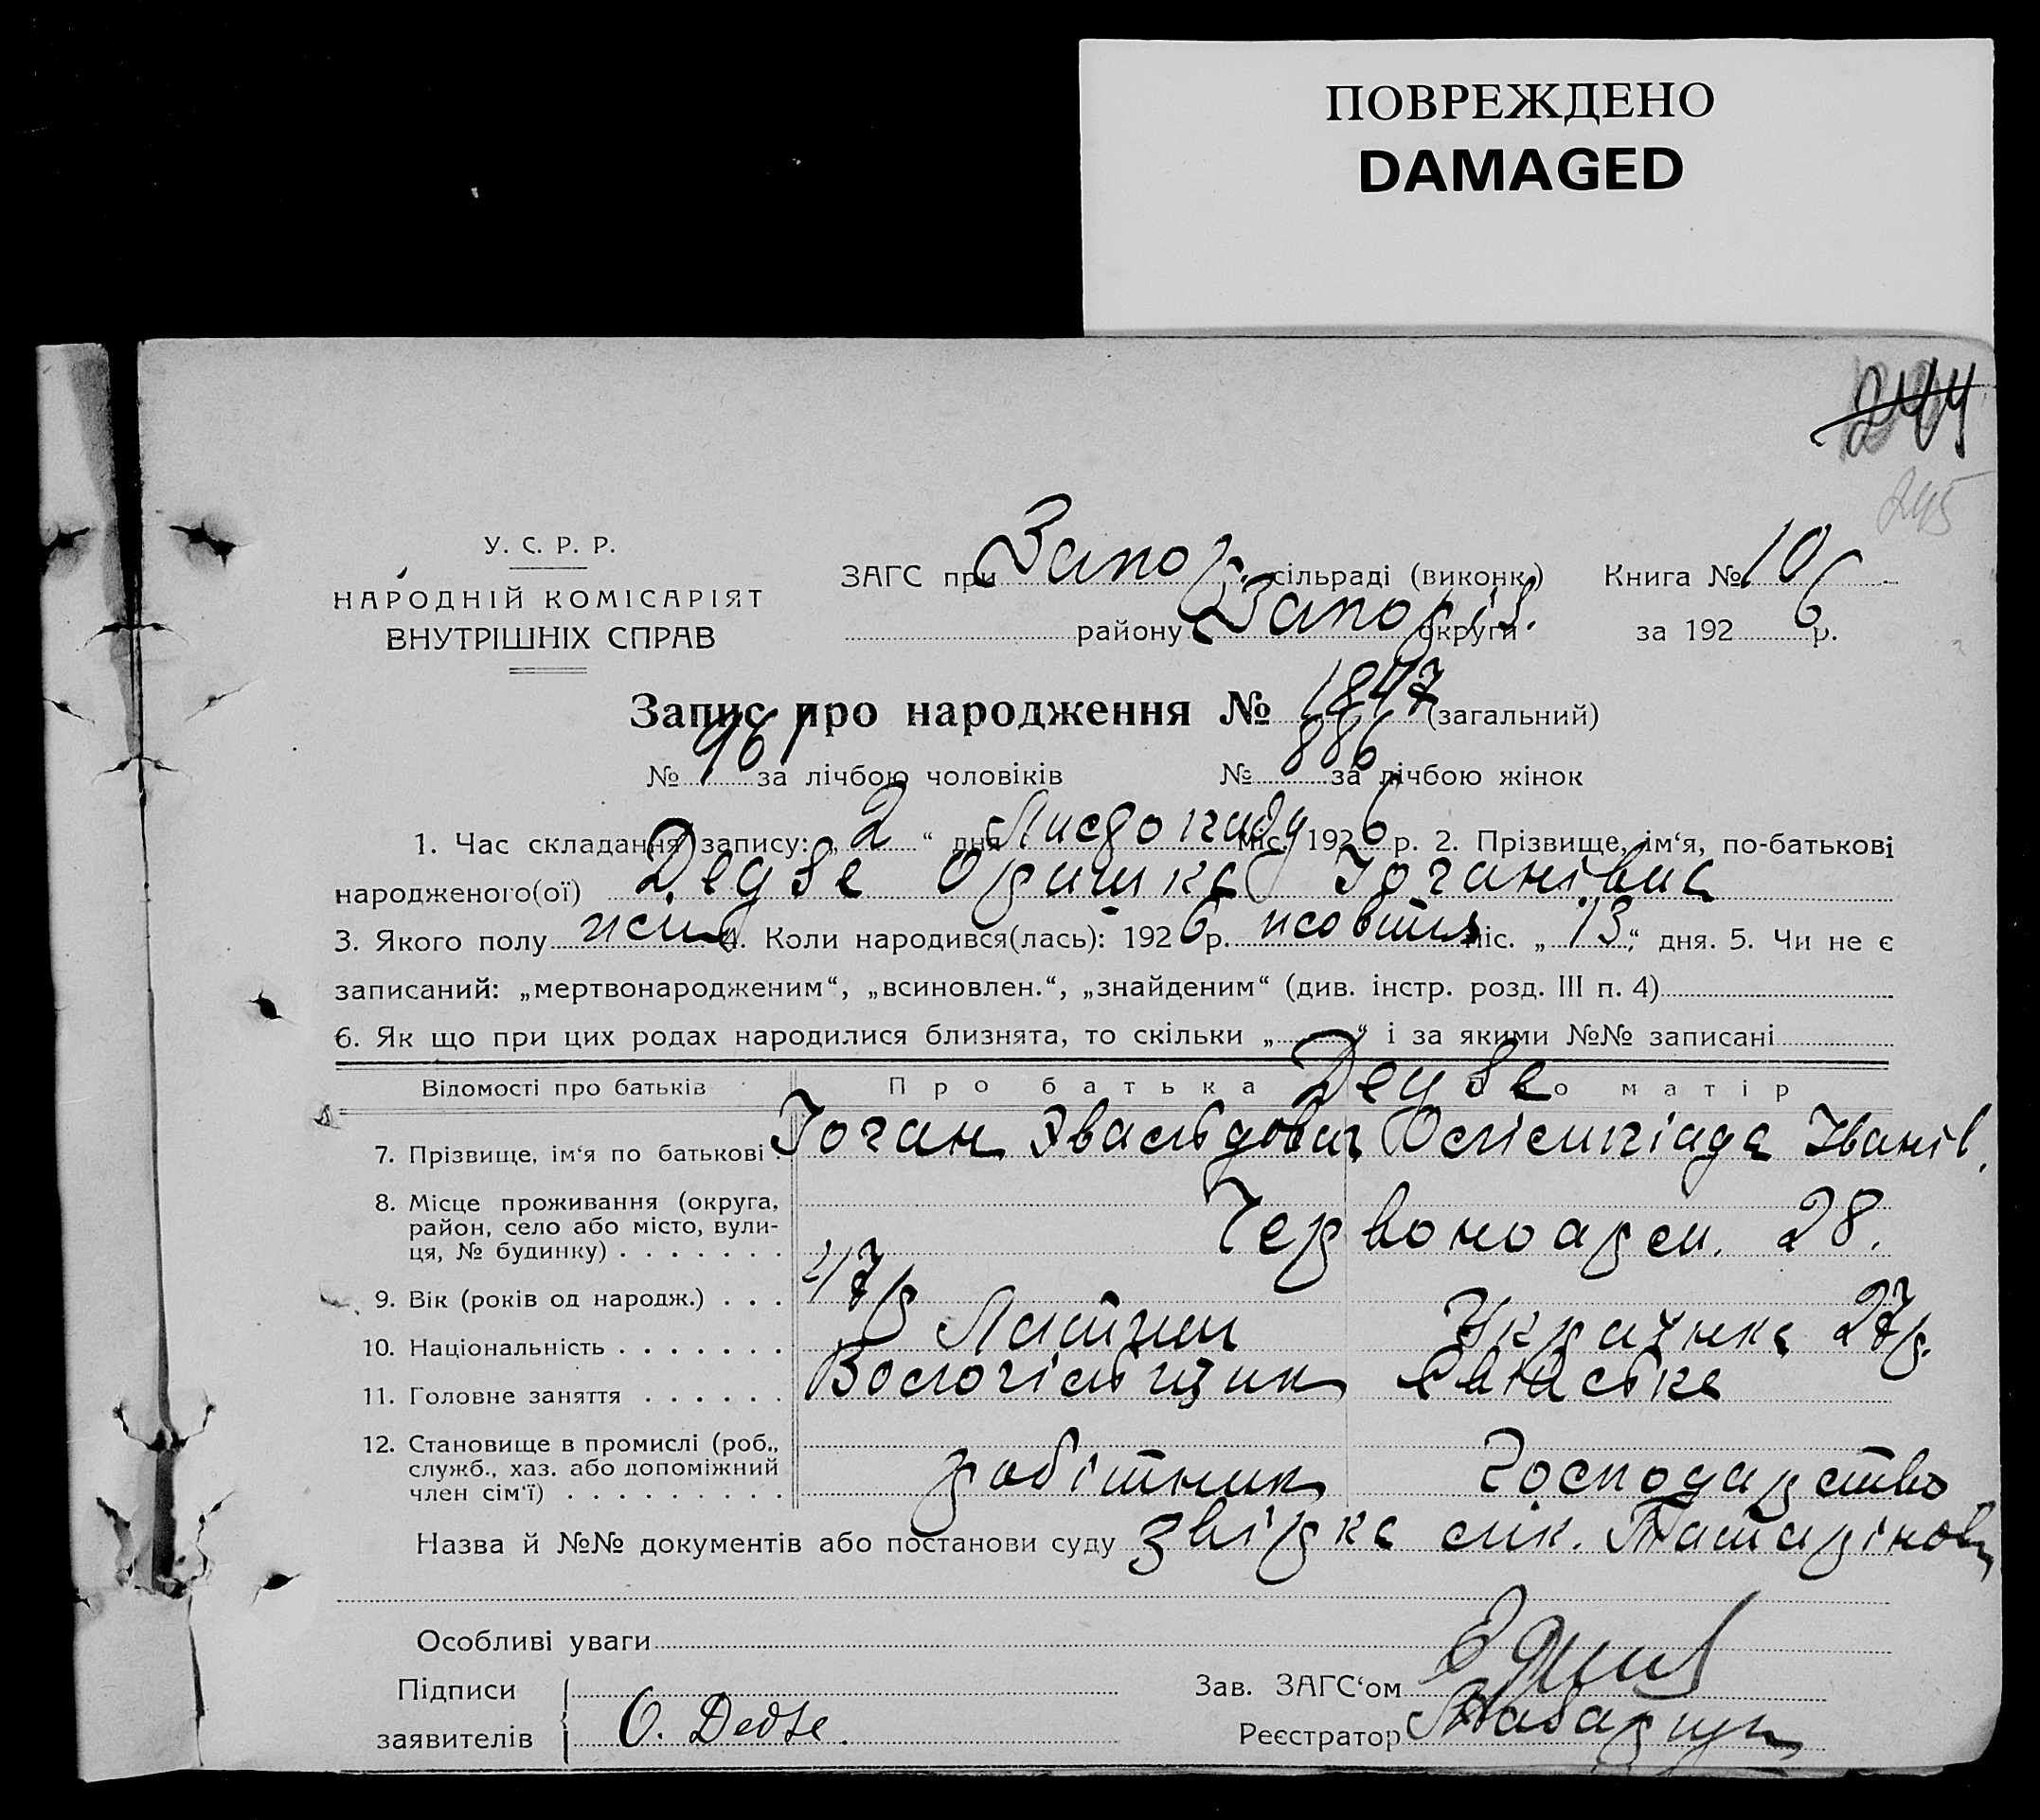 ПОВРЕЖДЕНО
DAMAGED
244
245
У. С. Р. Р.
НАРОДНІЙ КОМІСАРІЯТ
ВНУТРІШНІХ СПРАВ
ЗАГС при Запор. сільраді (виконк.) Книга № 10
району Запоріз. округи за 1926 р.
Запис про народження № 1847 (загальний)
№ 961 за лічбою чоловіків № 886 за лічбою жінок
1. Час складання запису: „2“ дня Листопаду міс. 1926 р. 2. Прізвище, ім‘я, по-батькові
народженого(ої) Дедзе Іоганівна
3. Якого полу жін. 4. Коли народився(лась): 1926 р. жовтня міс. „13“ дня. 5. Чи не є
записаний: „мертвонародженим“, „всиновлен.“, „знайденим“ (див. інстр. розд. III п. 4)
6. Як що при цих родах народилися близнята, то скільки „ “ і за якими №№ записані
Дедзе
Відомості про батьків Про батька Про матір
7. Прізвище, ім‘я по батькові Іоган Олімпіада Іванів.
8. Місце проживання (округа,
район, село або місто, вули-
ця, № будинку) . . . . . . . Червоноарм. 28.
9. Вік (років од народж.) . . . 47 р 27 р.
10. Національність . . . . . . . Латиш Українка
11. Головне заняття . . . . . .
12. Становище в промислі (роб.,
служб., хаз. або допоміжний
член сім‘ї) . . . . . . . . . робітник господарство
Назва й №№ документів або постанови суду звірка
Особливі уваги
Підписи
заявителів О. Dedze.
Зав. ЗАГС‘ом
Реєстратор